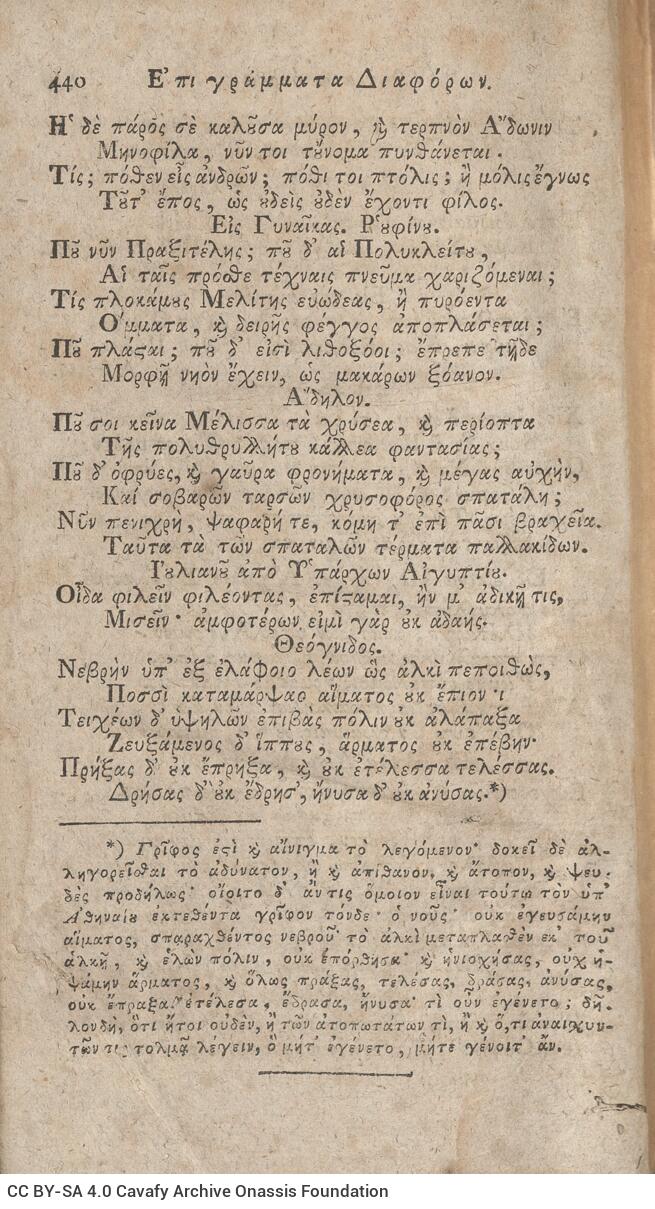 440 Ἐπιγράμματα Διαφόρων.
Ἡ δὲ πάρος σὲ καλȣ͂σα μύρον, ϗ τερπνὸν Ἄδωνιν
Μηνοφίλα, νῦν τοι τȣ́νομα πυνθάνεται.
Τίς; πόθεν εἶς ἀνδρῶν; πόθι τοι πτόλις; ἢ μόλις ἔγνως
Τȣ͂τ' ἔπος, ὡς ȣ̓δεὶς ȣ̓δὲν ἔχοντι φίλος.
Εἰς Γυναῖκας. Ῥȣφίνȣ.
Πȣ͂ νῦν Πραξιτέλης; πȣ͂ δ' αἱ Πολυκλείτȣ,
Αἱ ταῖς πρόσθε τέχναις πνεῦμα χαριζόμεναι;
Τίς πλοκάμȣς Μελίτης εὐώδεας, ἢ πυρόεντα
Ὄμματα, ϗ δειρῆς φέγγος ἀποπλάσεται;
Πȣ͂ πλάϛαι; πȣ͂ δ' εἰσὶ λιθοξόοι; ἔπρεπε τῇδε
Μορφῇ νηὸν ἔχειν, ὡς μακάρων ξόανον.
Ἄδηλον.
Πȣ͂ σοι κεῖνα Μέλισσα τὰ χρύσεα, ϗ περίοπτα
Τῆς πολυθρυλλήτȣ κάλλεα φαντασίας;
Πȣ͂ δ' ὀφρύες, ϗ γαῦρα φρονήματα, ϗ μέγας αὐχὴν,
Καὶ σοβαρῶν ταρσῶν χρυσοφόρος σπατάλη;
Νῦν πενιχρὴ, ψαφαρή τε, κόμη τ' ἐπὶ πᾶσι βραχεῖα.
Ταῦτα τὰ τῶν σπαταλῶν τέρματα παλλακίδων.
Ἰȣλιανȣ͂ ἀπὸ Ὑπάρχων Αἰγυπτίȣ.
Οἶδα φιλεῖν φιλέοντας, ἐπίϛαμαι, ἤν μ' ἀδικῇ τις,
Μισεῖν· ἀμφοτέρων εἰμὶ γὰρ ȣ̓κ ἀδαής.
Θεόγνιδος.
Νεβρὴν ὑπ' ἐξ ἐλάφοιο λέων ὣς ἀλκὶ πεποιθὼς,
Ποσσὶ καταμάρψας αἵματος ȣ̓κ ἔπιον·
Τειχέων δ' ὑψηλῶν ἐπιβὰς πόλιν ȣ̓κ ἀλάπαξα
Ζευξάμενος δ' ἵππȣς, ἅρματος ȣ̓κ ἐπέβην·
Πρήξας δ' ȣ̓κ ἔπρηξα, ϗ ȣ̓κ ἐτέλεσσα τελέσσας.
Δρήσας δ' ȣ̓κ ἔδρησ', ἤνυσα δ' ȣ̓κ ἀνύσας.*)
*) Γρῖφος ἐϛὶ ϗ αἴνιγμα τὸ λεγόμενον· δοκεῖ δὲ ἀλ-
ληγορεῖσθαι τὸ ἀδύνατον, ἢ ϗ ἀπίθανον, ϗ ἄτοπον, ϗ ψευ-
δὲς προδήλως· οἴοιτο δ' ἄν τις ὅμοιον εἶναι τούτῳ τὸν ὑπ'
Ἀθηναίȣ ἐκτεθέντα γρῖφον τόνδε· ὁ νοῦς· οὐκ ἐγευσάμην
αἵματος, σπαραχθέντος νεβροῦ· τὸ ἀλκὶ μεταπλασθὲν ἐκ τοῦ
ἀλκῇ, ϗ ἑλὼν πόλιν, οὐκ ἐπόρθησα· ϗ ἡνιοχήσας, οὐχ ἡ-
ψάμην ἅρματος, ϗ ὅλως πράξας, τελέσας, δράσας, ἀνύσας,
οὐκ ἔπραξα, ἐτέλεσα, ἔδρασα, ἤνυσα· τί οὖν ἐγένετο; δῆ-
λον δὴ, ὅτι ἤτοι οὐδὲν, ἢ τῶν ἀτοπωτάτων τὶ, ἢ ϗ ὅ,τι ἀναισχυν-
τῶν τις τολμᾷ λέγειν, ὃ μήτ' ἐγένετο, μήτε γένοιτ' ἄν.
CC BY-SA 4.0 Cavafy Archive Onassis Foundation